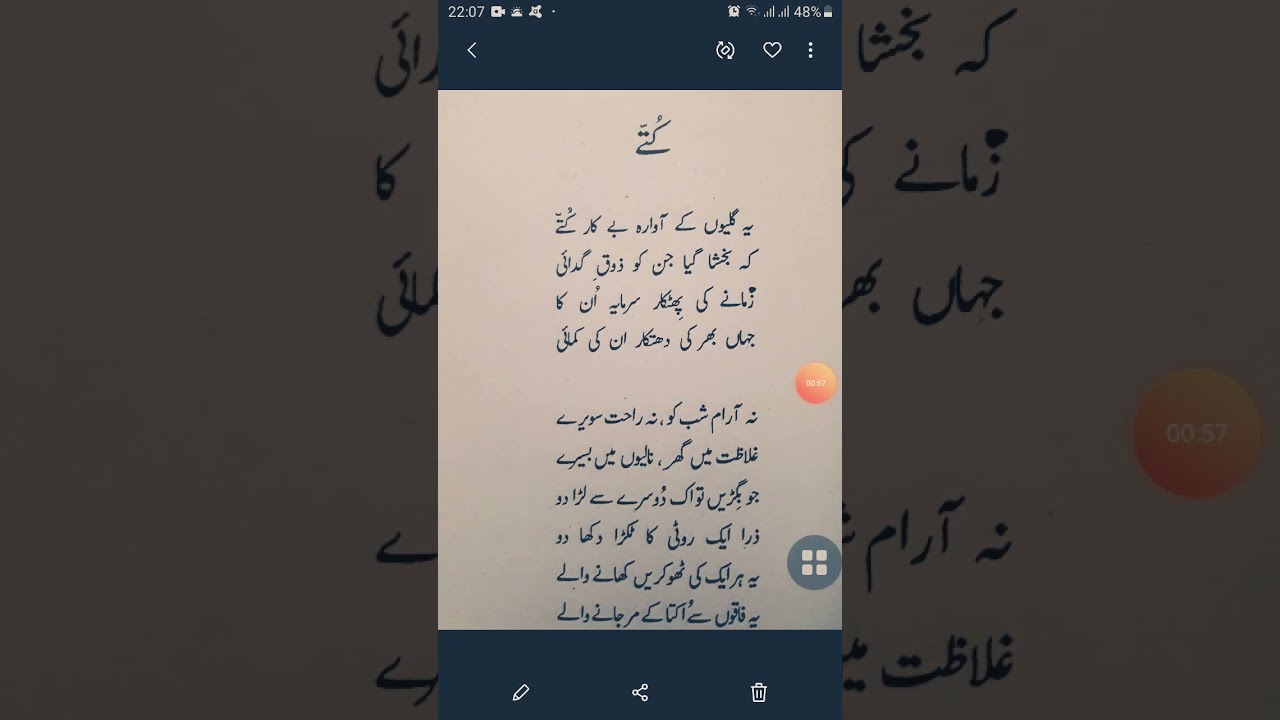 22:07
48%
کُتّے
یہ گلیوں کے آوارہ بے کار کُتّے
کہ بخشا گیا جن کو ذوقِ گدائی
زمانے کی پھٹکار سرمایہ اُن کا
جہاں بھر کی دھتکار ان کی کمائی
نہ آرام شب کو، نہ راحت سویرے
غلاظت میں گھر، نالیوں میں بسیرے
جو بِگڑیں تو اک دُوسرے سے لڑا دو
ذرا ایک روٹی کا ٹکڑا دکھا دو
یہ ہر ایک کی ٹھوکریں کھانے والے
یہ فاقوں سے اُکتا کے مر جانے والے
00:57
کہ بخشا
زمانے کی
کا
جہاں بھر
کمائی
00:57
نہ آرام
غلاظت